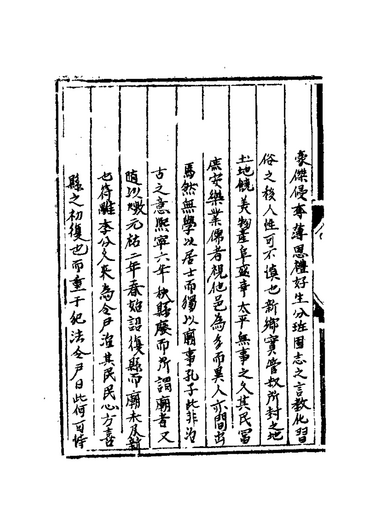 豪傑侵奪薄恩禮好生分班固志之言教化習
俗之移人性可不慎也新鄉實管叔所封之地
土地饒美物產阜盛幸太平無事之久其民富
庶安樂業儒者視他邑為多而異人亦間出
焉然無學以居士而獨以廟事孔子此非治
古之意熙寧六年秩縣廢而所謂廟者又
隨以墩元祐二年春始詔復縣而廟未及
也符離李公久來為令尹治其民民心方喜
縣之初復也而重干紀法令尹曰此何可